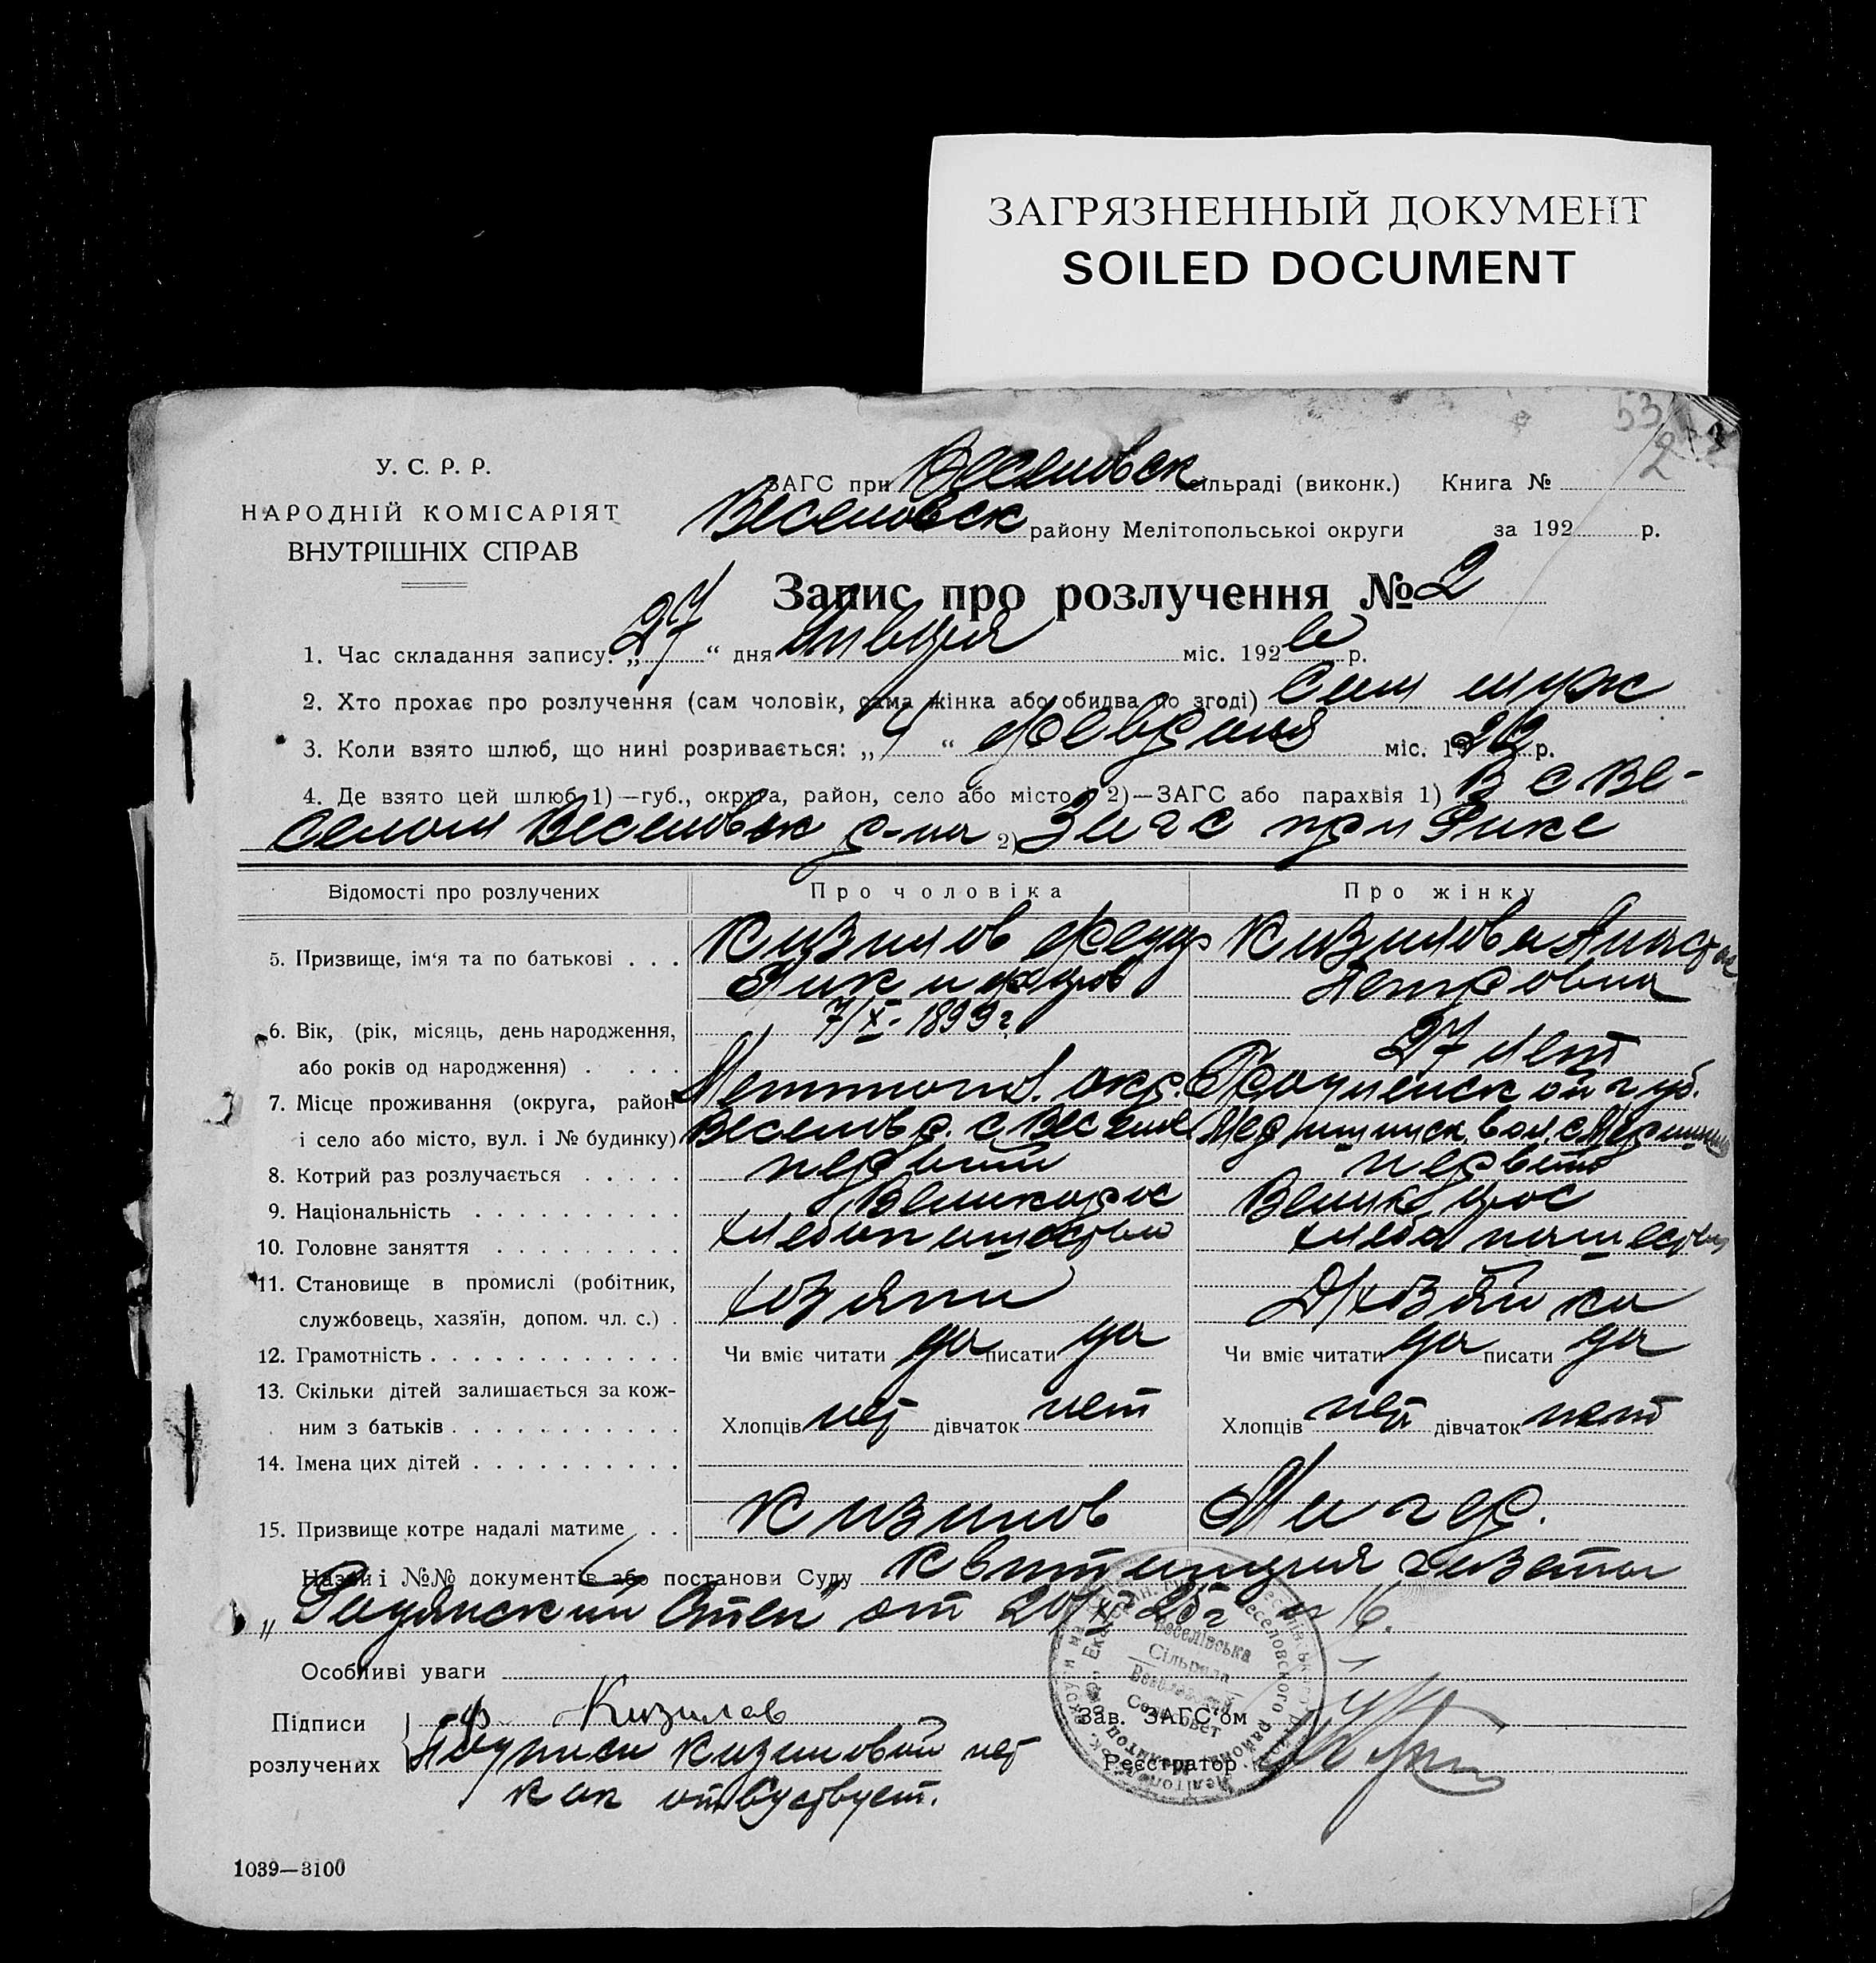 ЗАГРЯЗНЕННЫЙ ДОКУМЕНТ
SOILED DOCUMENT
53
2
У. С. Р. Р.
НАРОДНІЙ КОМІСАРІЯТ
ВНУТРІШНІХ СПРАВ
ЗАГС при Веселовск сільраді (виконк.) Книга №
Веселовск району Мелітопольської округи за 192 р.
Запис про розлучення № 2
1. Час складання запису: „27“ дня Января міс. 1926 р.
2. Хто прохає про розлучення (сам чоловік, сама жінка або обидва по згоді) Сам муж
3. Коли взято шлюб, що нині розривається: „4“ февраля міс. 19 р.
4. Де взято цей шлюб 1)—губ., округа, район, село або місто і 2)—ЗАГС або парахвія 1) В с Ве-
селом Веселовск р-на 2) Загс при Рике
Відомості про розлучених Про чоловіка Про жінку
5. Призвище, ім‘я та по батькові . . . Кизилов Федор Кизилова Анаст
Никифоров Петровна
6. Вік, (рік, місяць, день народження, 7/X-1899 г.
або років од народження) . . . . 27 лет
7. Місце проживання (округа, район Мелитопол. окр. губ.
і село або місто, вул. і № будинку) Веселов р. с. Веселое вол. с.
8. Котрий раз розлучається . . . . . первый первый
9. Національність . . . . . . . . . . Великорос Великорос
10. Головне заняття . . . . . . . . . Хлебопашество Хлебопашество
11. Становище в промислі (робітник,
службовець, хазяїн, допом. чл. с.) . Хозяин Д/хозяйка
12. Грамотність . . . . . . . . . . . . Чи вміє читати да писати да Чи вміє читати да писати да
13. Скільки дітей залишається за кож-
ним з батьків . . . . . . . . . . . Хлопців нет дівчаток нет Хлопців нет дівчаток нет
14. Імена цих дітей . . . . . . . . . .
15. Призвище котре надалі матиме . . Кизилов
Назви і №№ документів або постанови Суду Квитанция газеты
„Радянский Степ“ от 20/ 25 г № 16.
Особливі уваги
Підписи Ф Кизилов
розлучених Подписи Кизиловой нет
как отсуствует.
Веселівська
Сільрада
Веселовский
Сельсовет
Зав. ЗАГС‘ом
Реєстратор
1039—3100